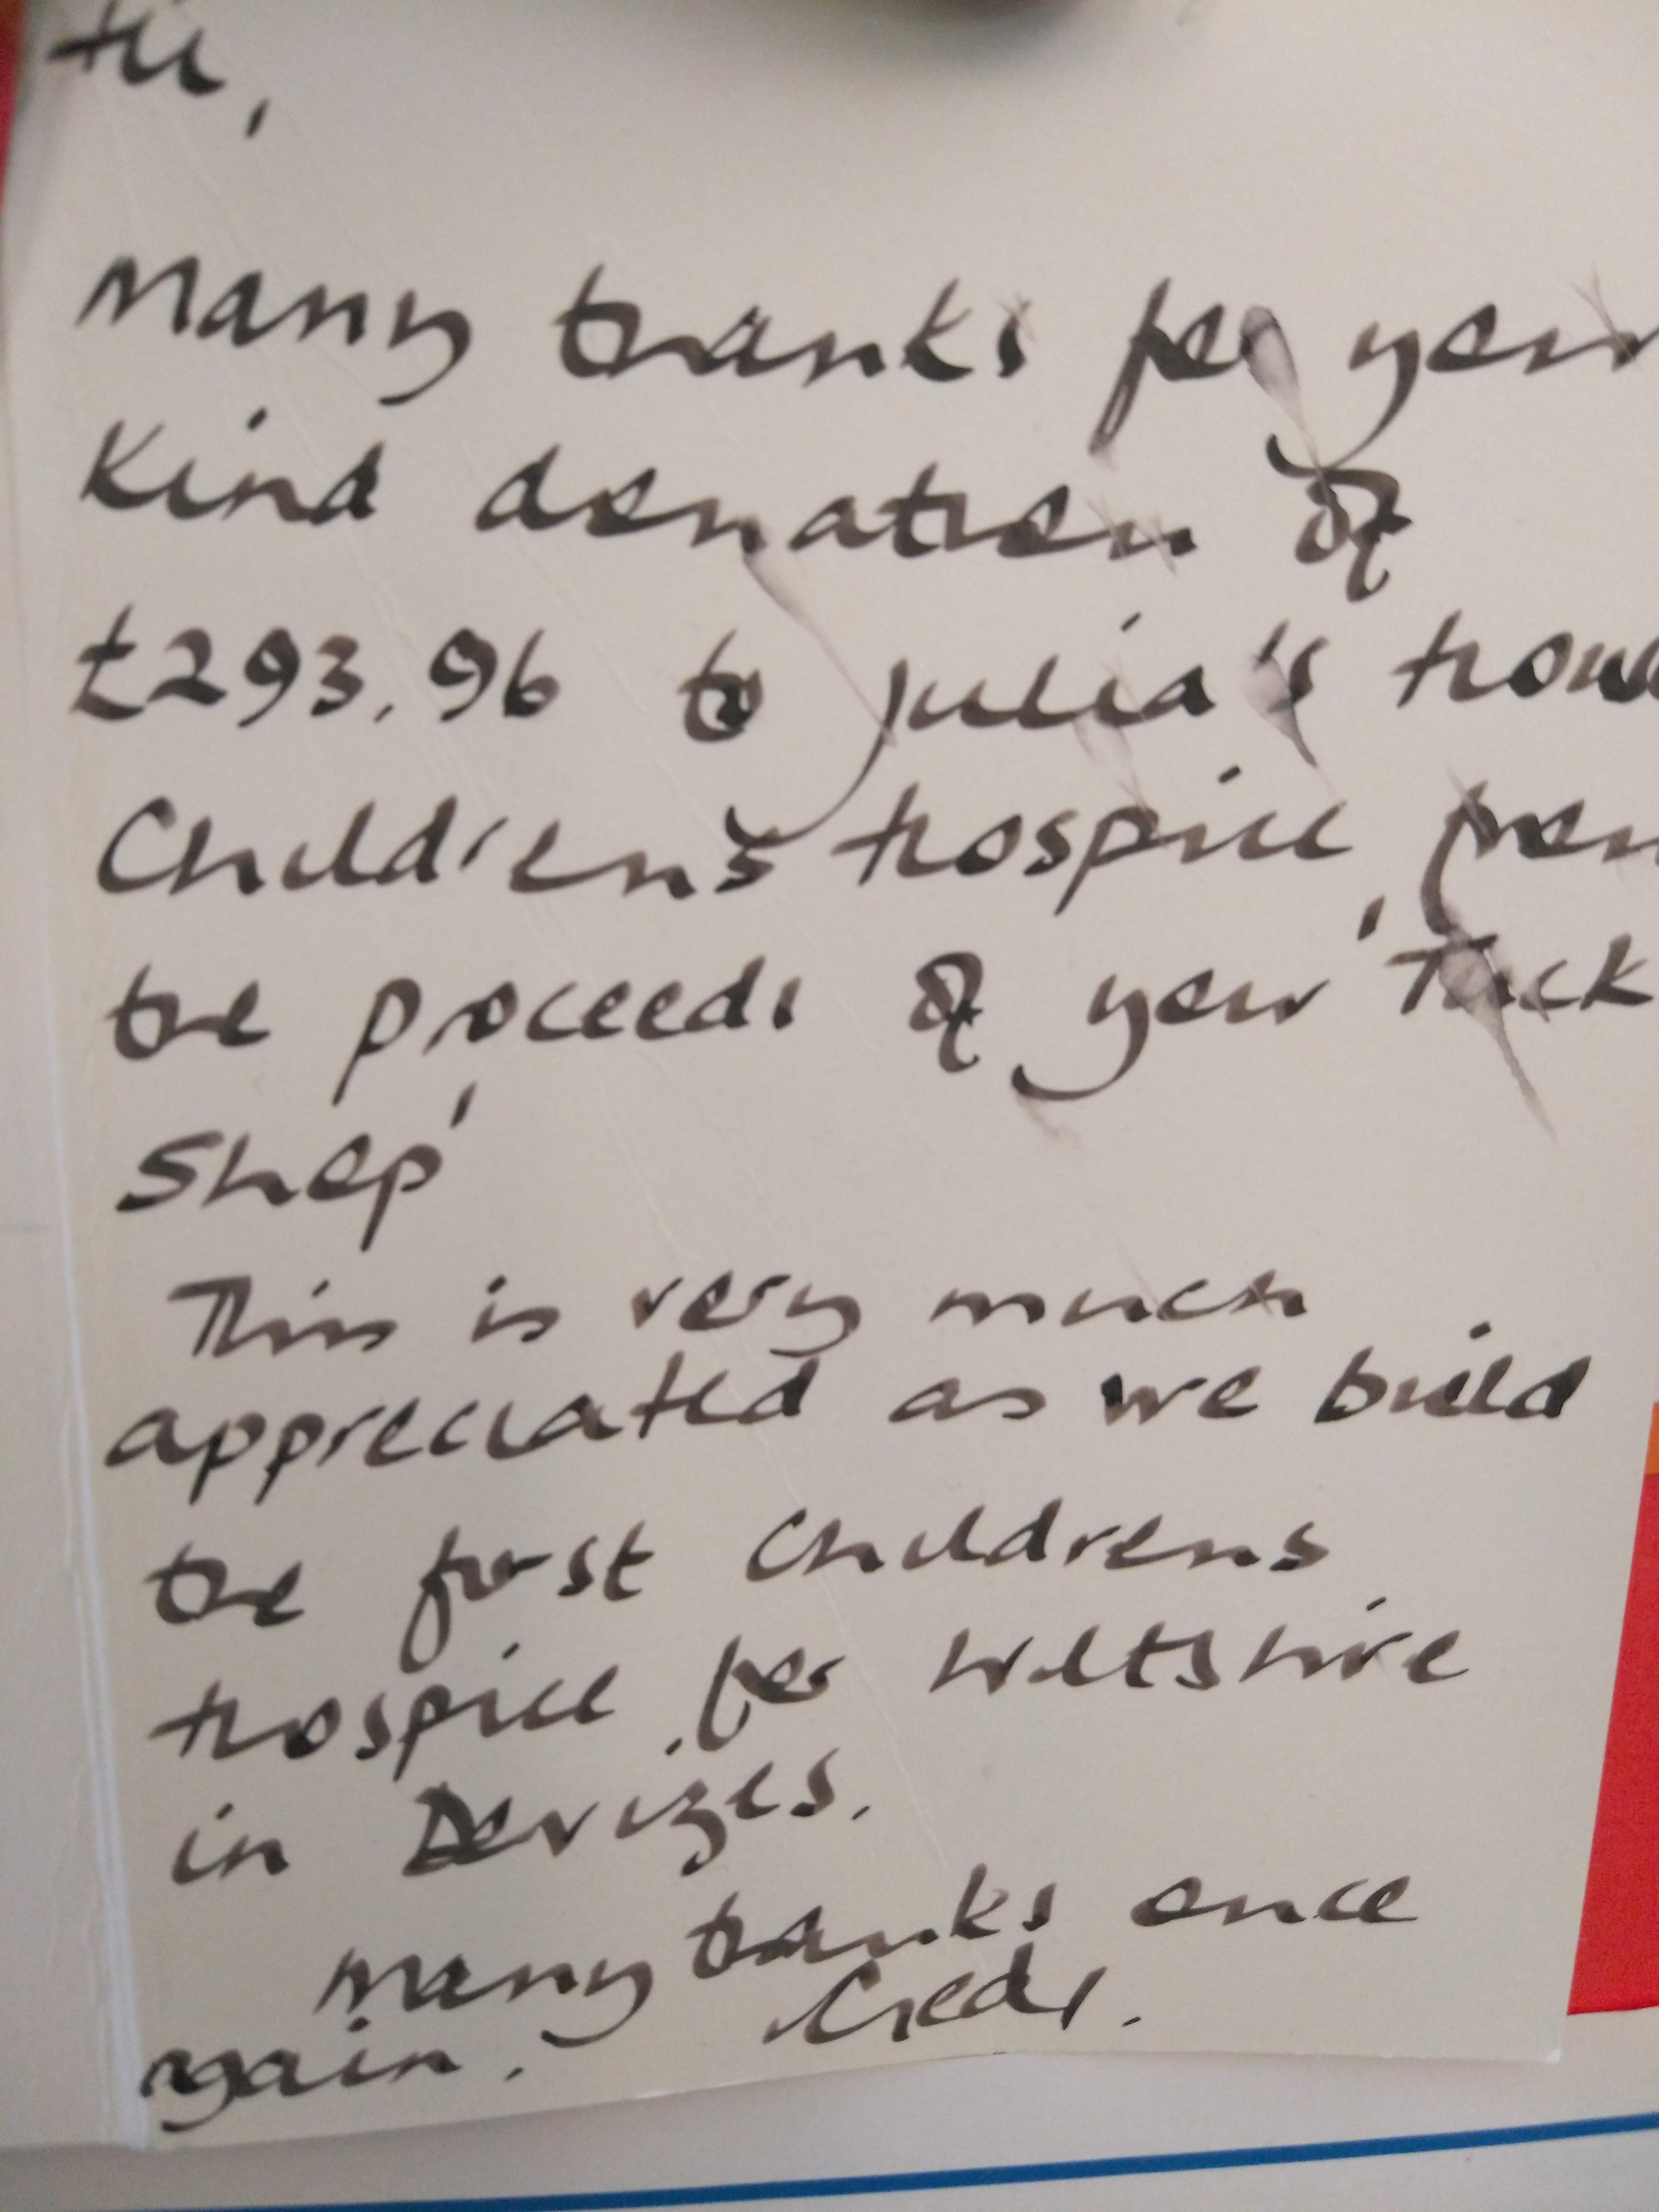 Hi,
Many thanks for your
Kind donation of
£293.96 to Julia's House
Children's Hospice, from
the proceeds of your 'Tuck
Shop'
This is very much
appreciated as we build
the first Childrens
Hospice for Wiltshire
in Devizes.
Many thanks once
again.